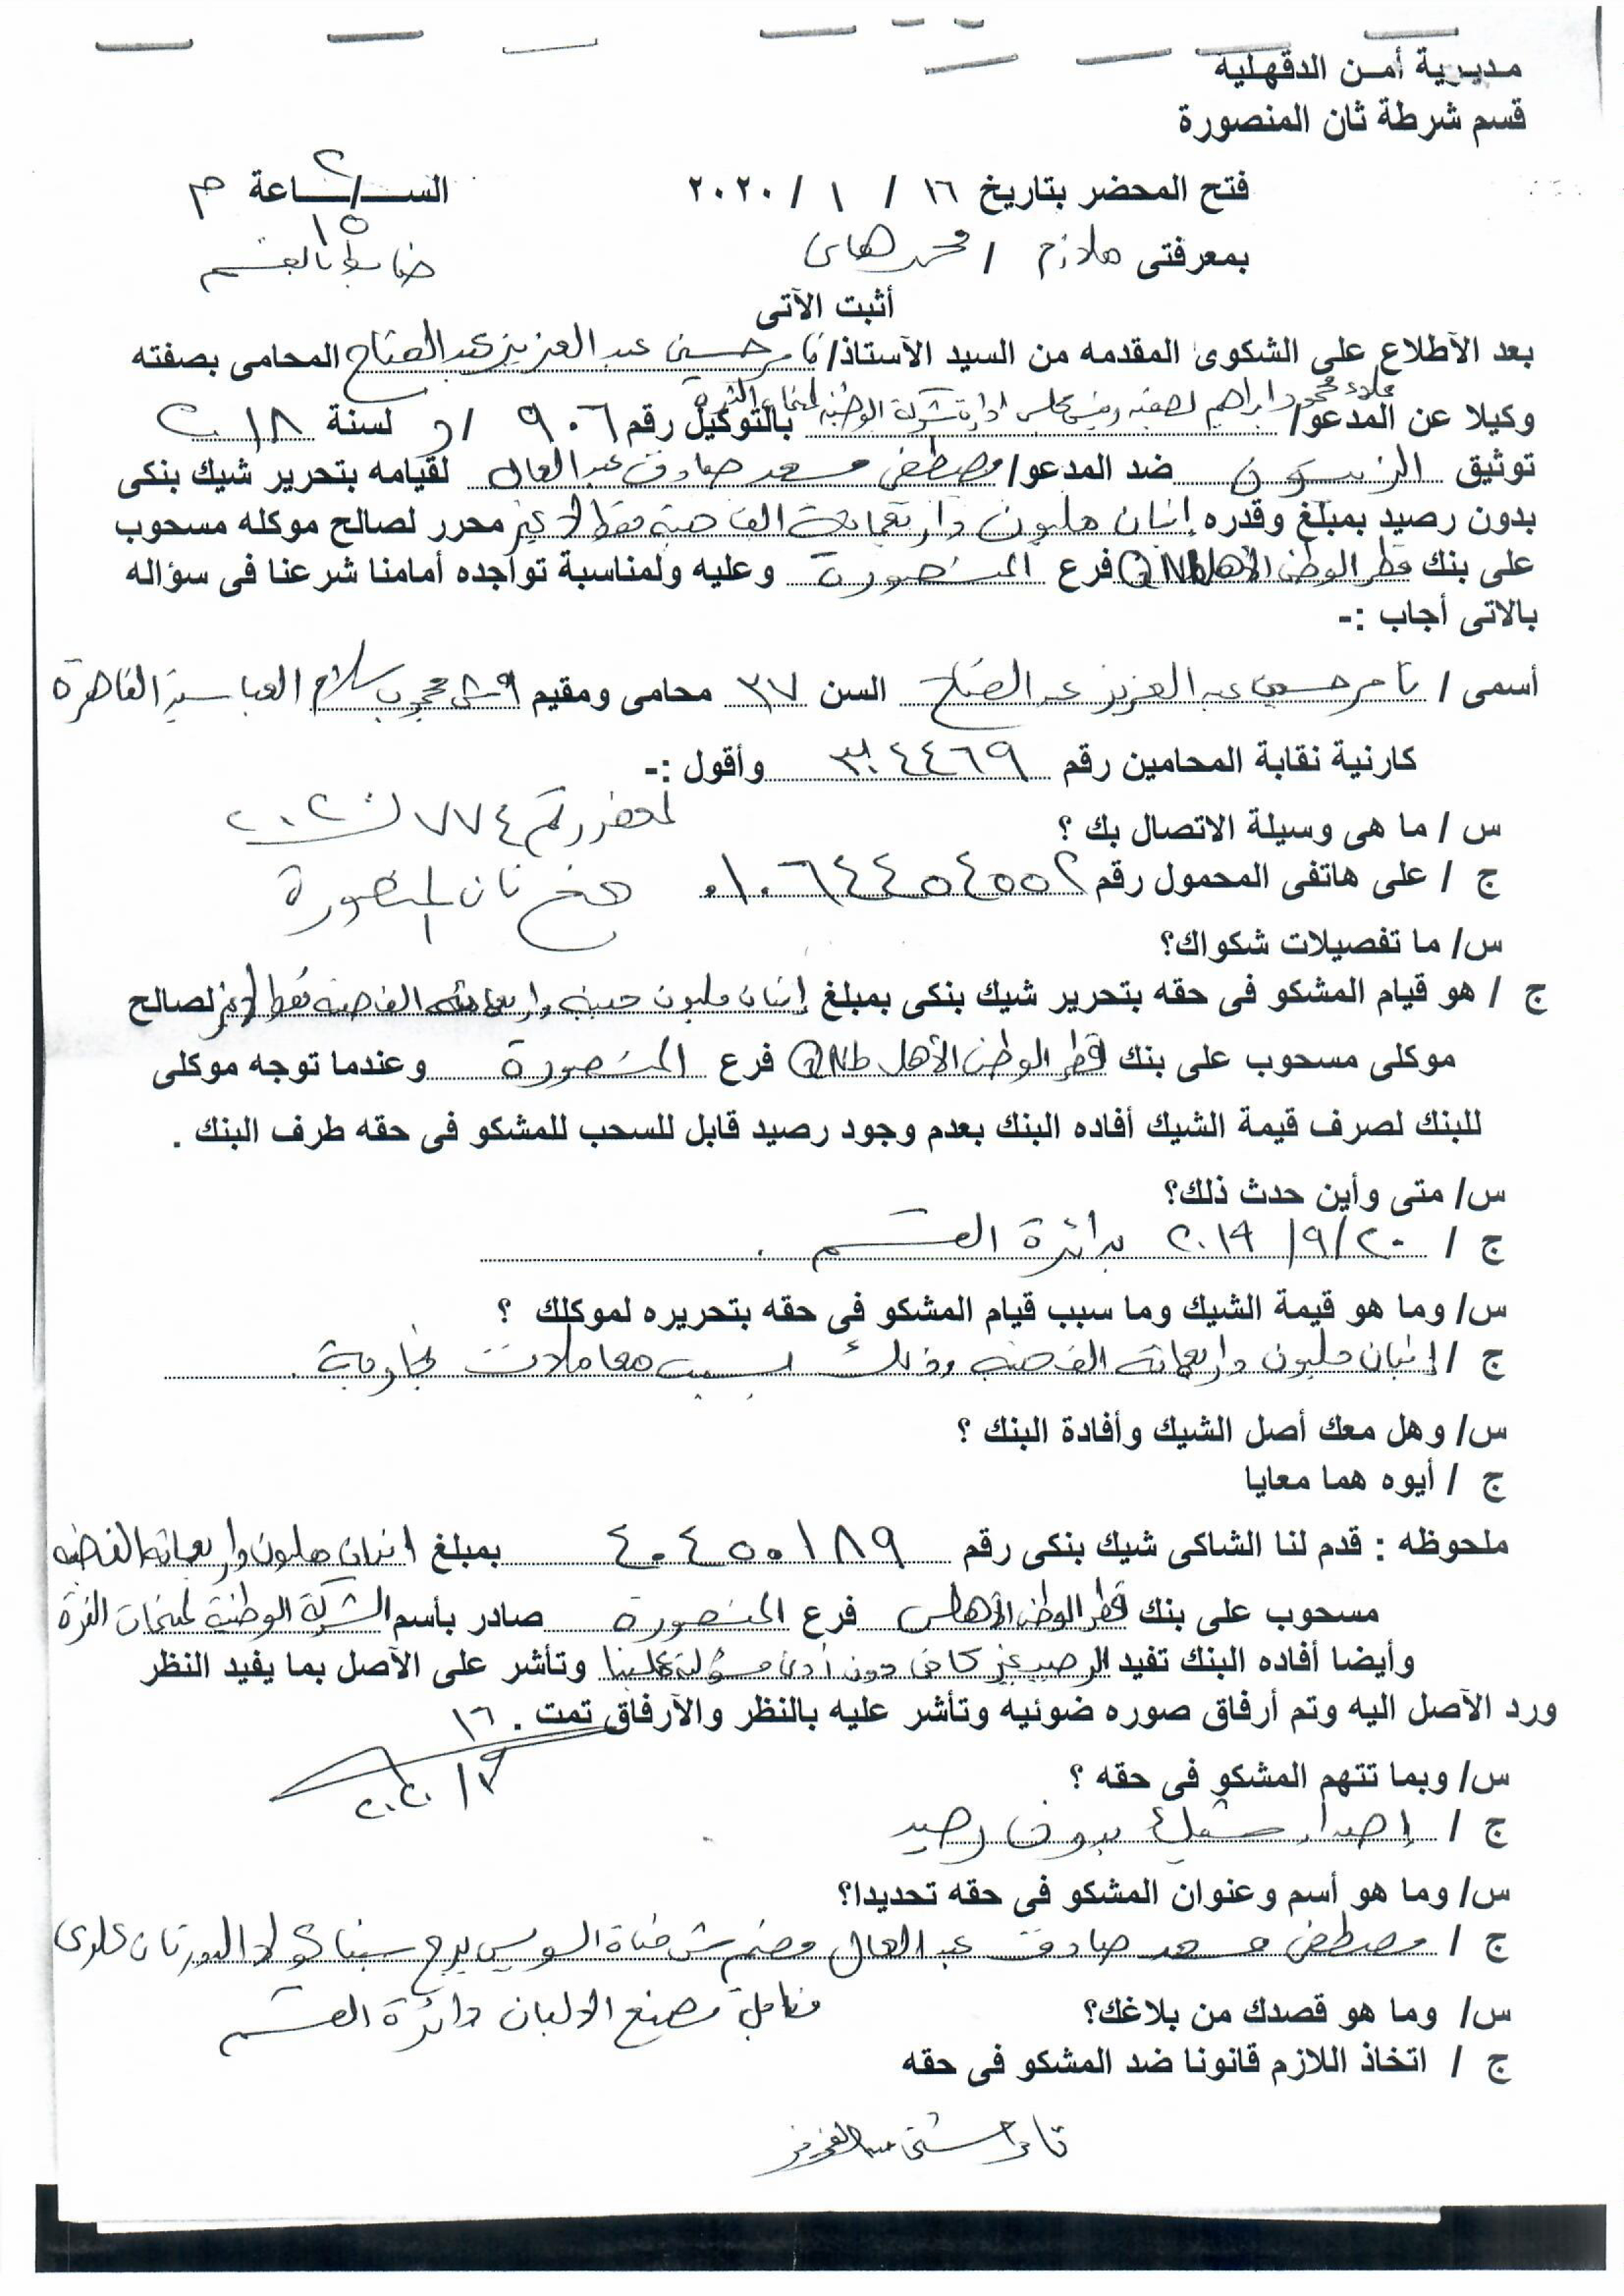 مديرية أمن الدقهلية
قسم شرطة ثان المنصورة
فتح المحضر بتاريخ ١٦ / ١ / ٢٠٢٠ الساعة ٢ / ١٥ م
بمعرفتى ملازم / محمد هانى ضابط بالقسم
أثبت الآتى
بعد الأطلاع على الشكوى المقدمه من السيد الآستاذ/ تامر حسين عبد العزيز عبد الفتاح المحامى بصفته
علاء محمود ابراهيم بصفته رئيس مجلس ادارة شركة الوطنية لمنتجات الذرة
وكيلا عن المدعو/ بالتوكيل رقم ٩٠٦ / و لسنة ٢٠١٨
توثيق الزيتون ضد المدعو/ مصطفى مسعد صادق عبد العال لقيامه بتحرير شيك بنكى
بدون رصيد بمبلغ وقدره إثنان مليون واربعمائة الف جنيه فقط لا غير محرر لصالح موكله مسحوب
على بنك قطر الوطنى الأهلى QNB فرع المنصورة وعليه ولمناسبة تواجده أمامنا شرعنا فى سؤاله
بالاتى أجاب :-
أسمى / تامر حسين عبد العزيز عبد الفتاح السن ٣٧ محامى ومقيم ٩ ش محجوب سلام العباسية القاهرة
كارنية نقابة المحامين رقم ٣٠٤٤٦٩ وأقول :-
لمحضر رقم ٧٧٤ لـ ٢٠٢٠
س / ما هى وسيلة الاتصال بك ؟
ج / على هاتفى المحمول رقم ٠١٠٦٤٤٥٤٥٥٢
جنح ثان المنصورة
س/ ما تفصيلات شكواك؟
ج / هو قيام المشكو فى حقه بتحرير شيك بنكى بمبلغ إثنان مليون جنيه واربعمائه الف جنيه فقط لا غير لصالح
موكلى مسحوب على بنك قطر الوطنى الأهلى QNB فرع المنصورة وعندما توجه موكلى
للبنك لصرف قيمة الشيك أفاده البنك بعدم وجود رصيد قابل للسحب للمشكو فى حقه طرف البنك .
س/ متى وأين حدث ذلك؟
ج / ٢٠/ ٩/ ٢٠١٩ بدائرة القسم .
س/ وما هو قيمة الشيك وما سبب قيام المشكو فى حقه بتحريره لموكلك ؟
ج / إثنان مليون واربعمائة الف جنيه وذلك بسبب معاملات تجارية .
س/ وهل معك أصل الشيك وأفادة البنك ؟
ج / أيوه هما معايا
ملحوظه : قدم لنا الشاكى شيك بنكى رقم ٤٠٤٥٠٠١٨٩ بمبلغ اثنان مليون واربعمائة الف جنيه
مسحوب على بنك قطر الوطنى الأهلى فرع المنصورة صادر بأسم الشركة الوطنية لمنتجات الذرة
وأيضا أفاده البنك تفيد الرصيد غير كافى دون أدنى مسؤلية علينا وتأشر على الآصل بما يفيد النظر
ورد الآصل اليه وتم أرفاق صوره ضوئيه وتأشر عليه بالنظر والآرفاق تمت .
س/ وبما تتهم المشكو فى حقه ؟
ج / إصدار شيك بدون رصيد
س/ وما هو أسم وعنوان المشكو فى حقه تحديدا؟
ج / مصطفى مسعد صادق عبد العال مقيم ش قناة السويس برج الدور تان علوى
س/ وما هو قصدك من بلاغك؟
مقابل مصنع الالبان دائرة القسم
ج / اتخاذ اللازم قانونا ضد المشكو فى حقه